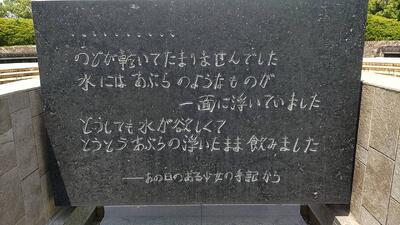 ・・・・・・・・・・
のどが乾いてたまりませんでした
水にはあぶらのようなものが
一面に浮いていました
どうしても水が欲しくて
とうとうあぶらの浮いたまま飲みました
――あの日のある少女の手記から